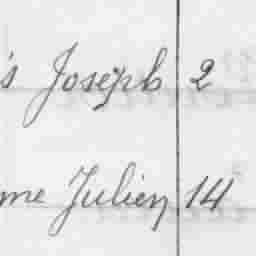 's Joseph 2
me Julien 14